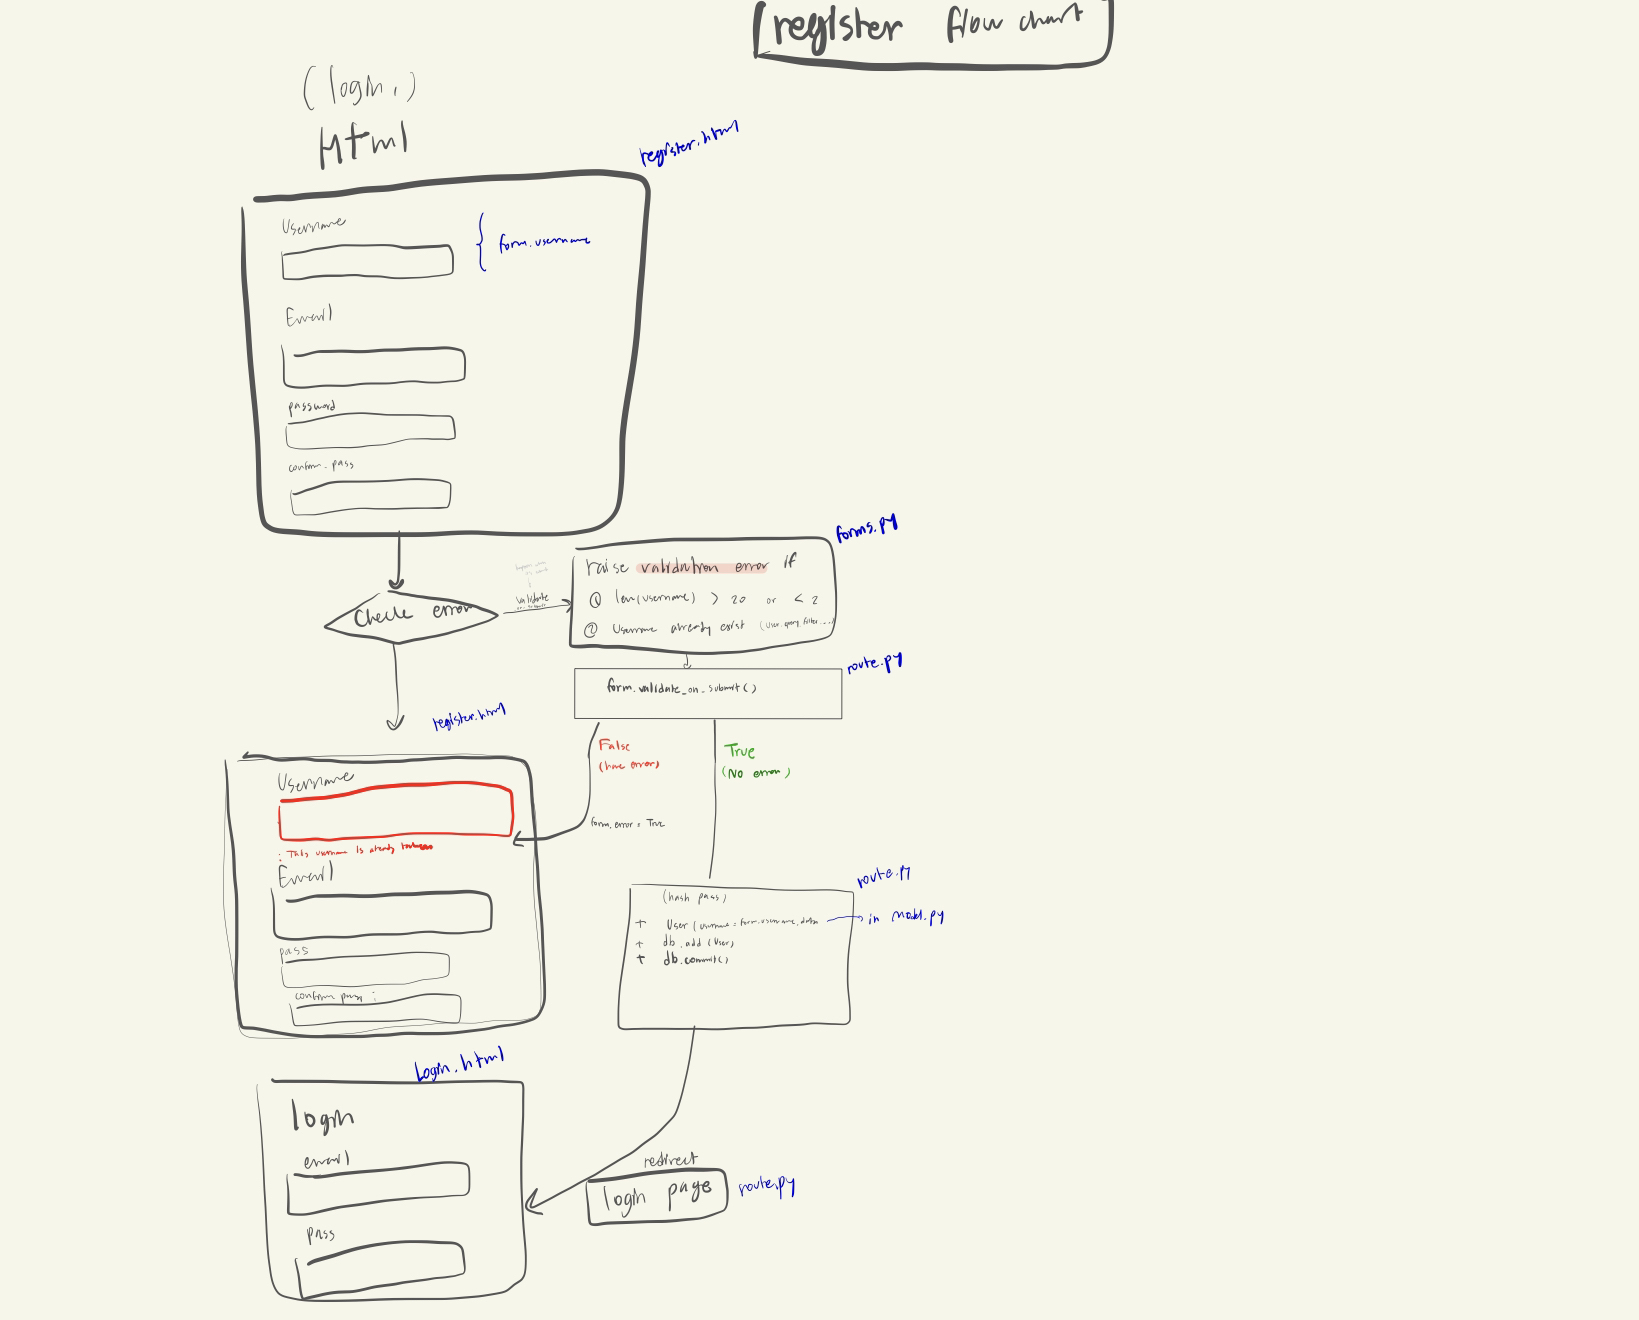 register flow chart
(login.)
Html
register.html
Username
form.username
Email
password
confirm_pass
forms.py
raise validation error if
① len(username) > 20 or < 2
② Username already exist (User.query.filter....)
Check error
validate
route.py
form.validate_on_submit()
register.html
False
(have error)
True
(No error)
form.error = True
Username
: This username is already
Email
pass
confirm pass :
route.py
(hash pass)
+ User (username = form.username.data
in model.py
+ db.add (User)
+ db.commit()
Login.html
login
email
pass
redirect
login page
route.py